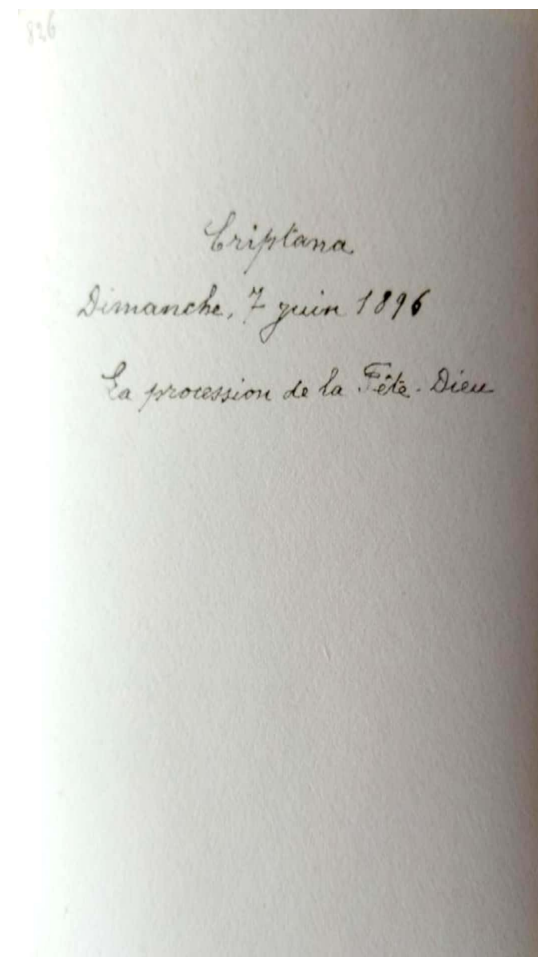 826
Criptana
Dimanche, 7 juin 1896
La procession de la Fête-Dieu